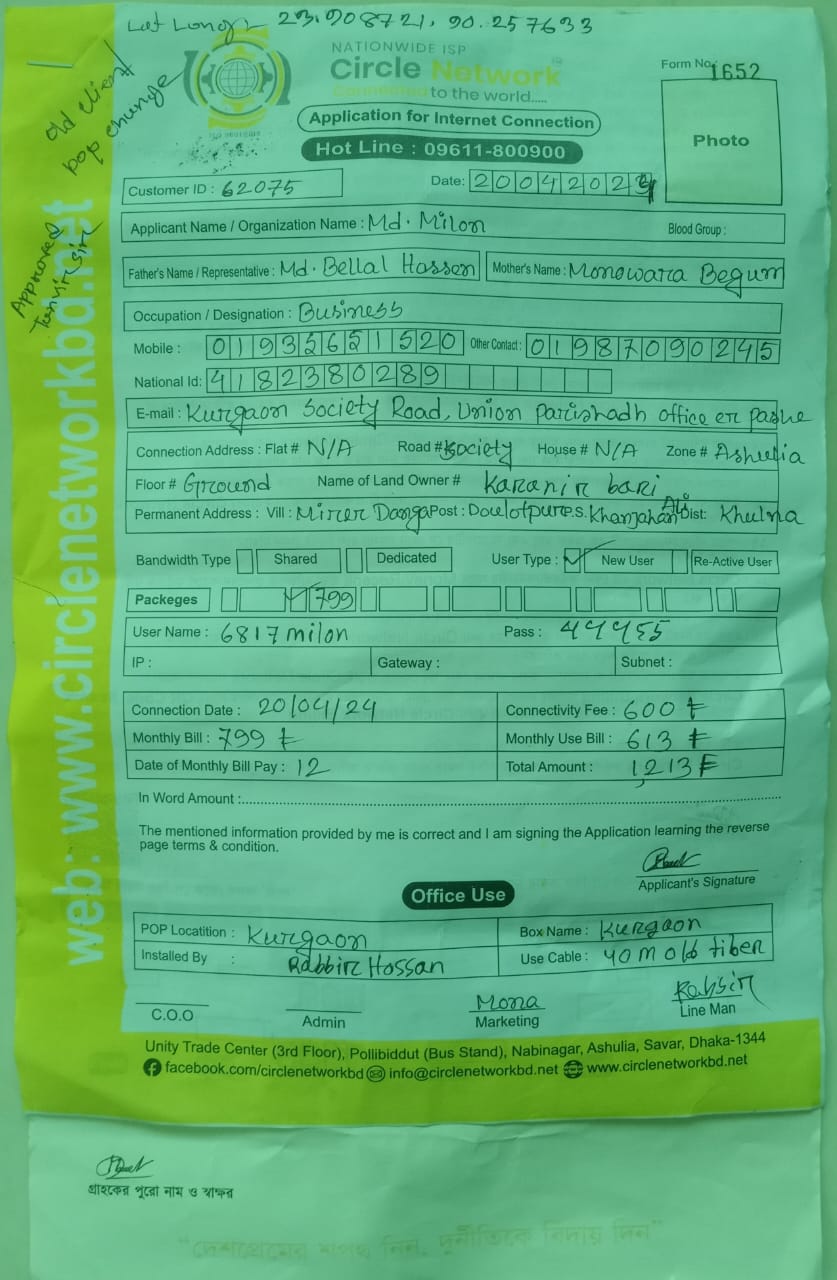 Lat Long:- 23.908721, 90.257633
Old client
pop change
Approved
web: www.circlenetworkbd.net
NATIONWIDE ISP
Circle Network
Connected to the world.....
ISO 9001:2015
Form No. 1652
Application for Internet Connection
Hot Line : 09611-800900
Photo
Customer ID : 62075
Date: 20042024
Applicant Name / Organization Name : Md. Milon Blood Group :
Father's Name / Representative : Md. Bellal Hossen Mother's Name : Monowara Begum
Occupation / Designation : Business
Mobile : 01935651520 Other Contact : 01987090245
National Id: 4182380289
E-mail : Kurgaon Society Road, Union Parishadh office er pashe
Connection Address : Flat # N/A Road # Society House # N/A Zone # Ashulia
Floor # Ground Name of Land Owner # Karanir bari
Permanent Address : Vill : Mirer Danga Post : Doulotpur P.S. Khanjahan Ali Dist: Khulna
Bandwidth Type Shared Dedicated User Type : ✓ New User Re-Active User
Packeges ✓ 799
User Name : 6817milon Pass : 44455
IP : Gateway : Subnet :
Connection Date : 20/04/24 Connectivity Fee : 600 ৳
Monthly Bill : 799 ৳ Monthly Use Bill : 613 ৳
Date of Monthly Bill Pay : 12 Total Amount : 1,213 ৳
In Word Amount :
The mentioned information provided by me is correct and I am signing the Application learning the reverse
page terms & condition.
Applicant's Signature
Office Use
POP Locatition : Kurgaon Box Name : Kurgaon
Installed By : Rabbir Hossan Use Cable : 40 m old fiber
C.O.O Admin Mona Marketing Line Man
Unity Trade Center (3rd Floor), Pollibiddut (Bus Stand), Nabinagar, Ashulia, Savar, Dhaka-1344
facebook.com/circlenetworkbd info@circlenetworkbd.net www.circlenetworkbd.net
গ্রাহকের পুরো নাম ও স্বাক্ষর
"দেশপ্রেমের শপথ নিন, দুর্নীতিকে বিদায় দিন"